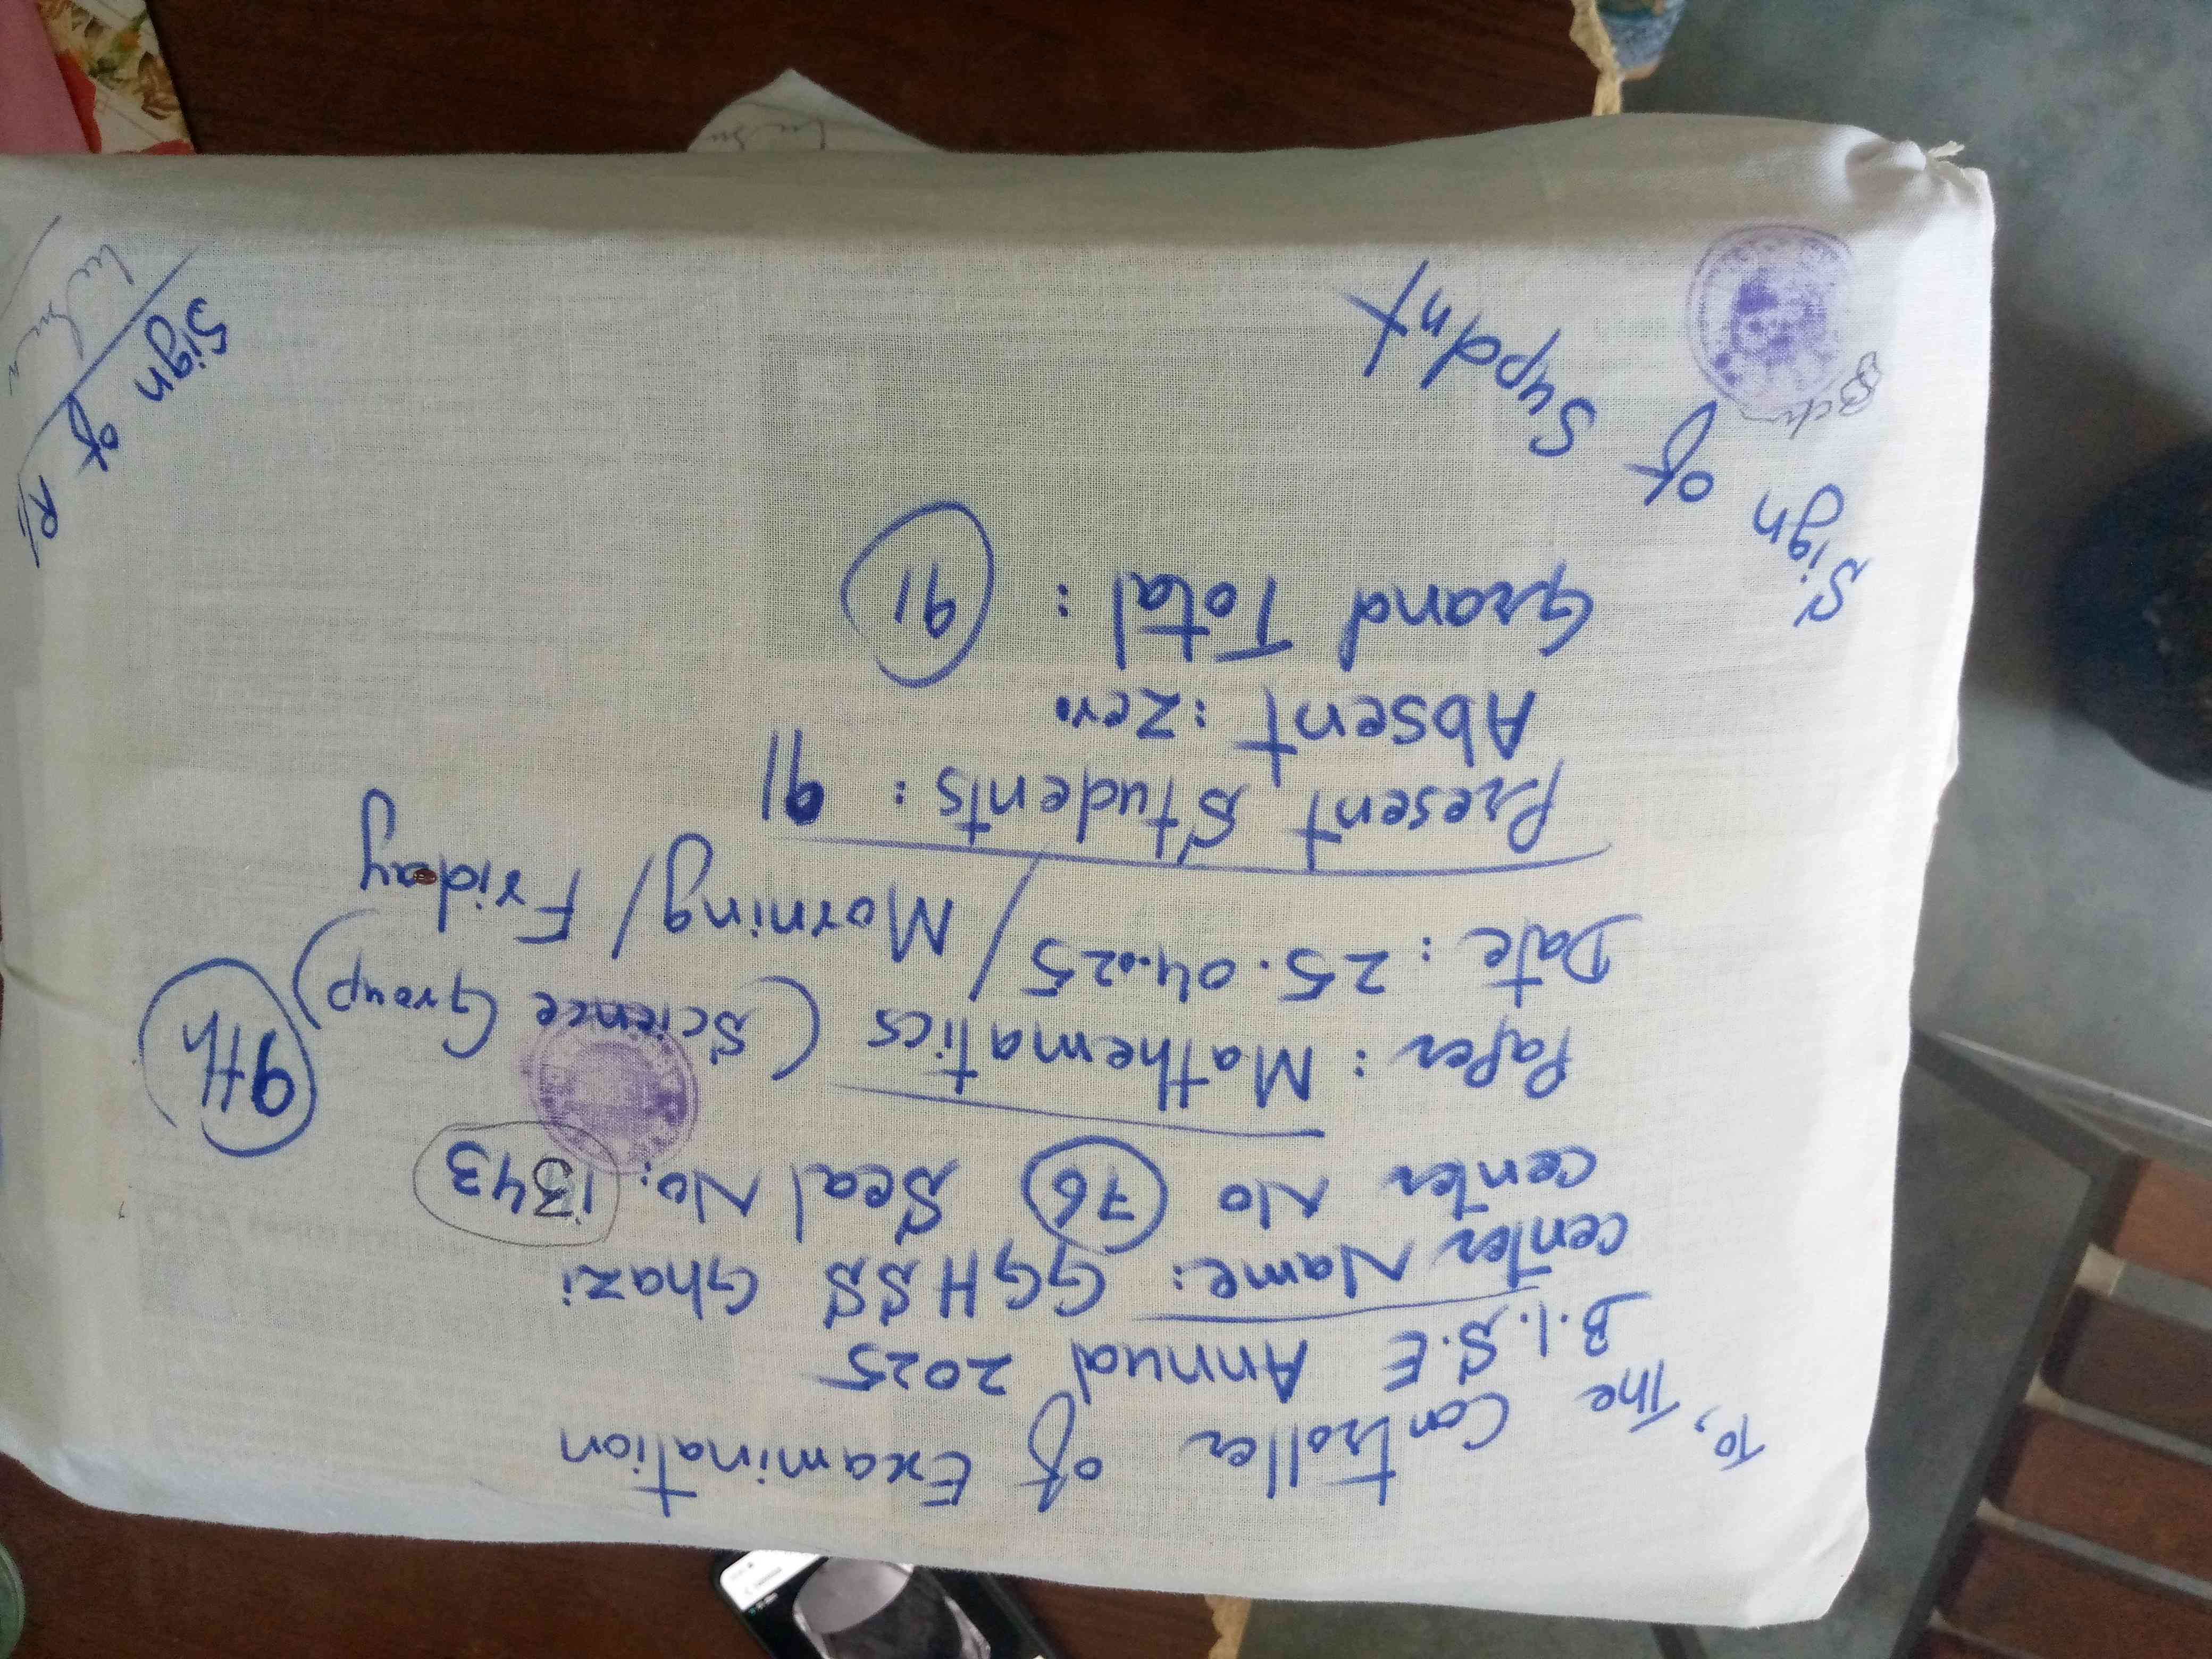 To,
The Controller of Examination
B.I.S.E Annual 2025
center Name: GGHSS Ghazi
center No 76 Seal No: 1343
9th
Paper: Mathematics (Science Group)
Date: 25.04.25 / Morning / Friday
Present Students: 91
Absent: Zero
Grand Total: 91
Sign of Supdnt
Sign of RI